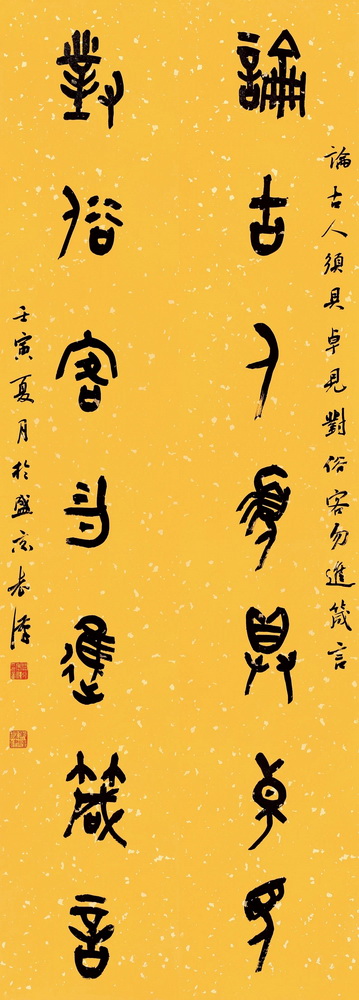 論古人須具卓見對俗客勿進箴言
論古人須具卓見
對俗客勿進箴言
壬寅夏月於盛京